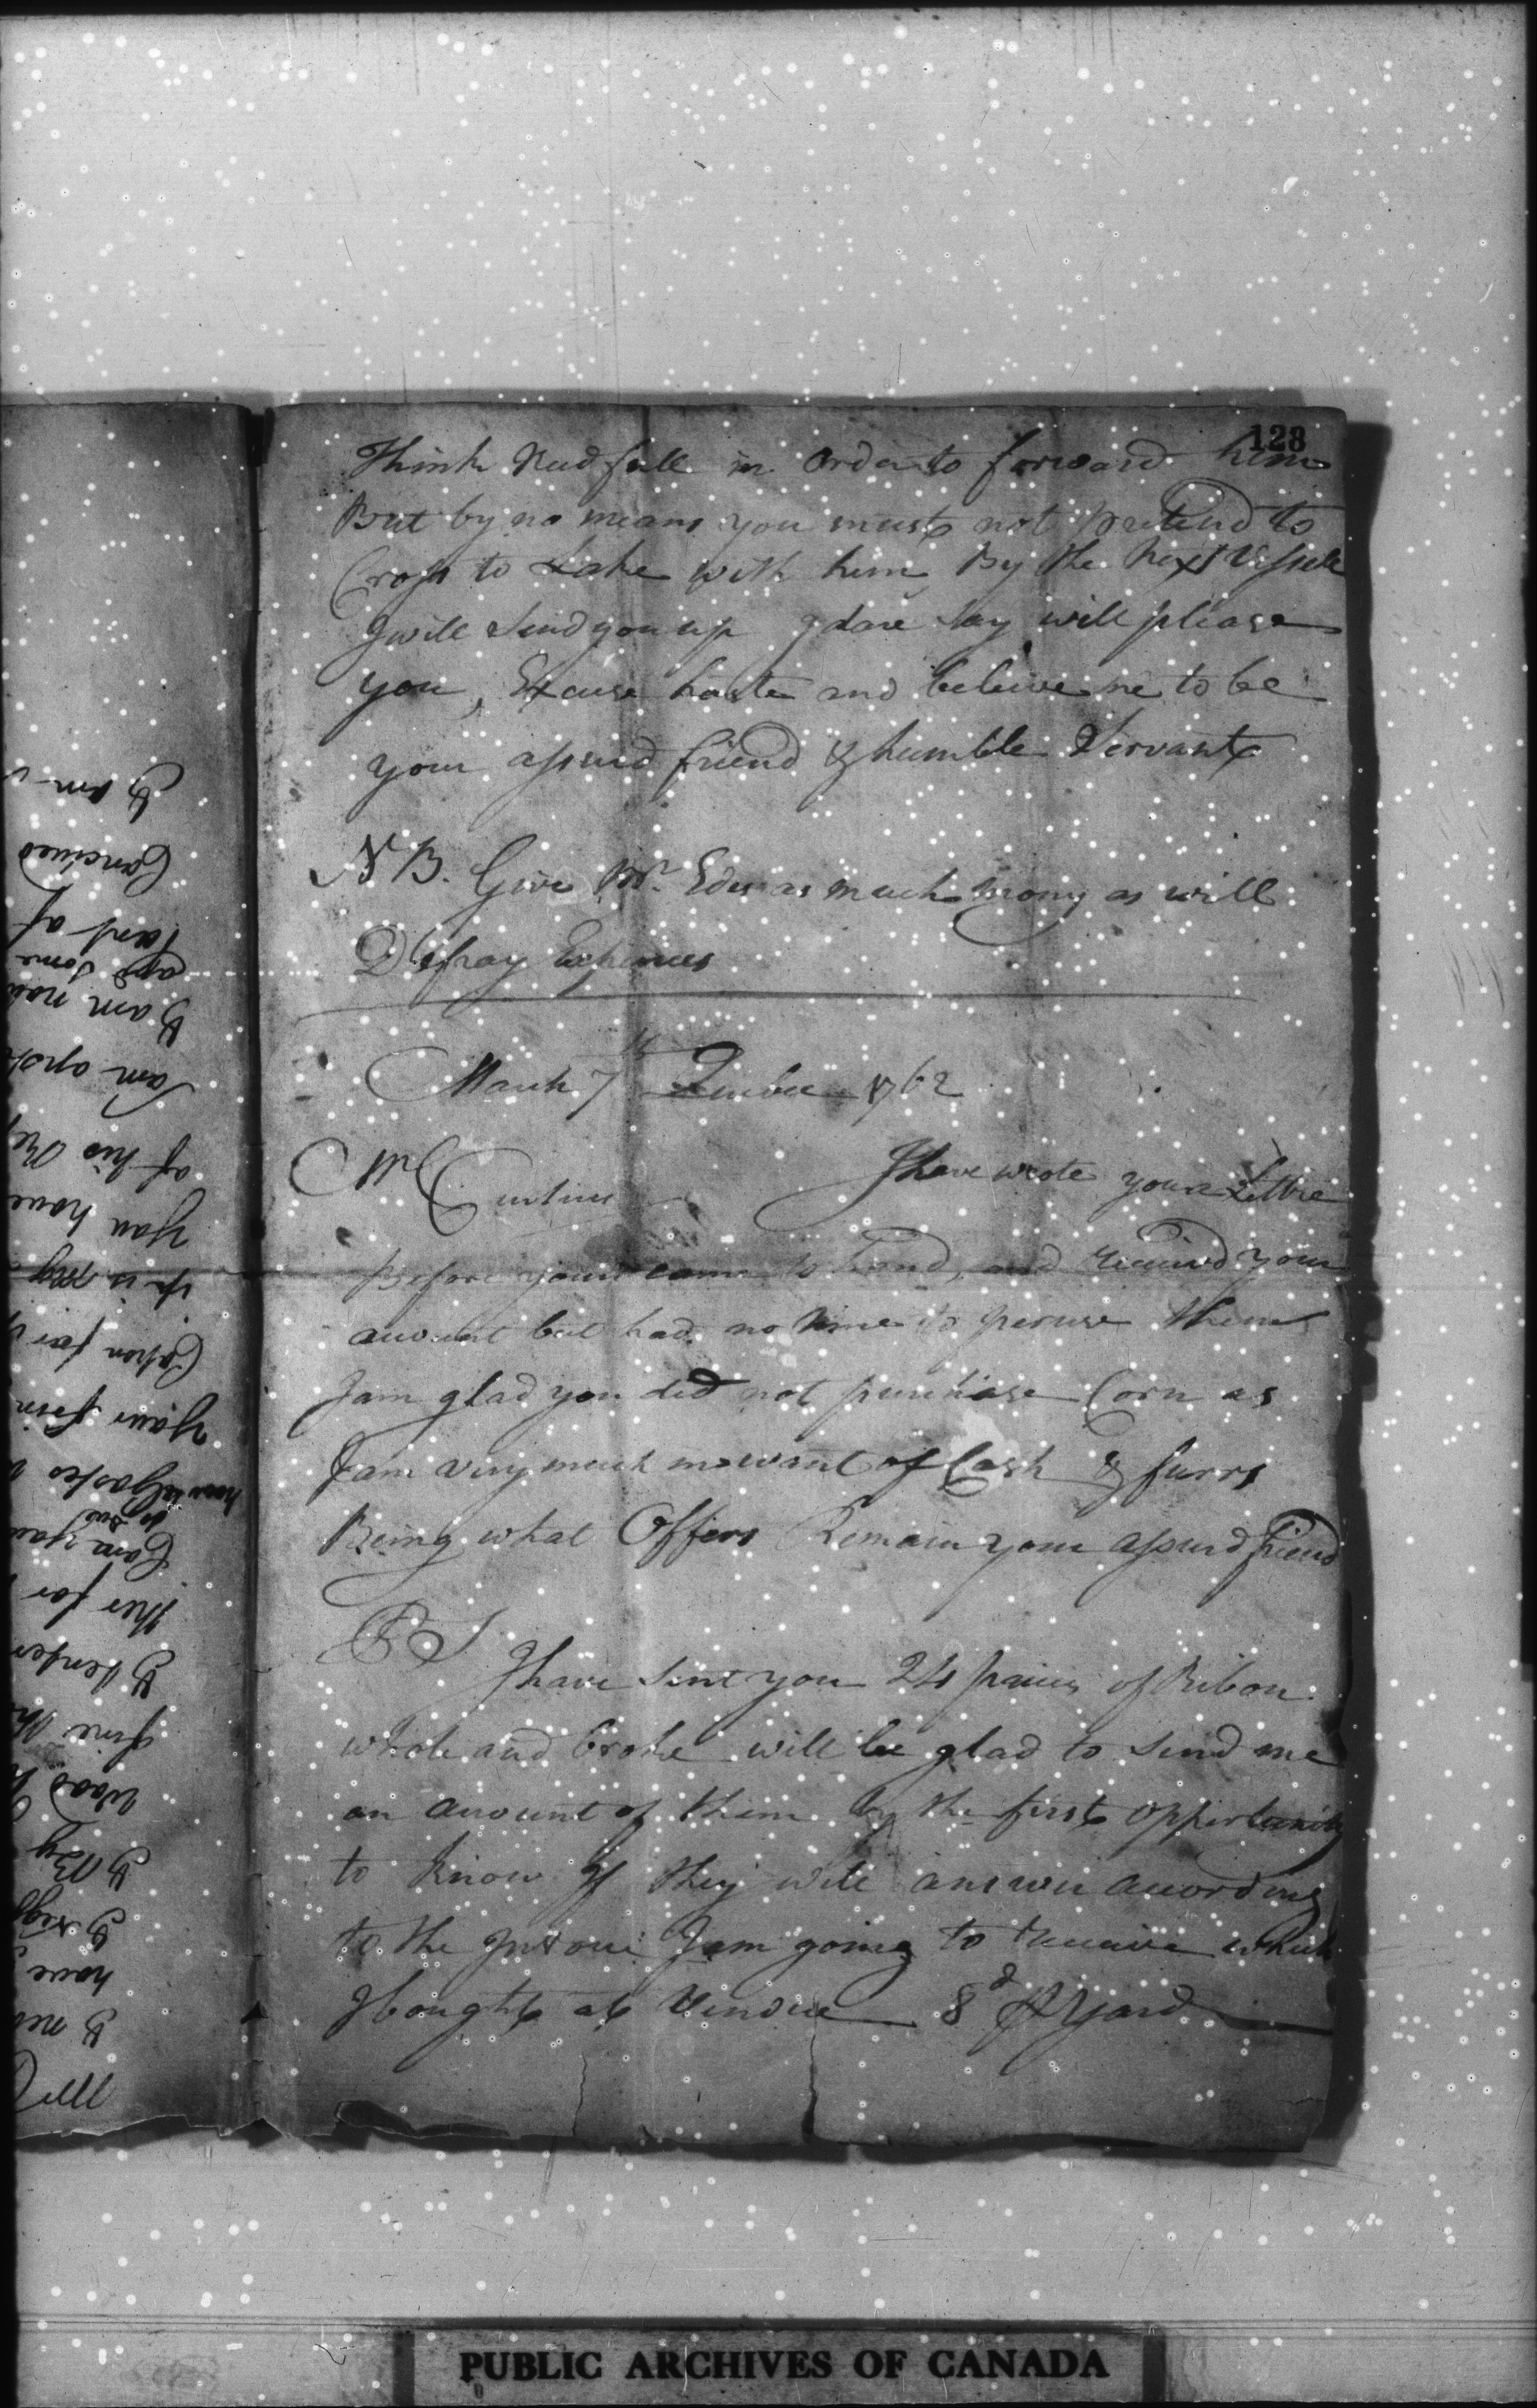 128
Think Needfull in Order to forward him
But by no means you must not pretend to
Cross to Lake with him By the Next Vessele
I will Send you up I dare Say will please
you, Excuse haste and beleive me to be
your assurd friend & humble Servant
N B. Give Mr. Edes as much mony as will
Defray Expences
March 7th Quebec 1762
Mr Curtius I have wrote your Lettre
Before yours came to hand, and received your
account but had no time to peruse them
I am glad you did not purchase Corn as
I am very much in want of Cash & furrs
Being what Offers Remain your assurd friend
P S
I have Sent you 24 pieces of Ribon
whole and broke will be glad to Send me
an account of them by the first opportunity
to know if they will answer according
to the I am going to receive which
I bought at Vendue 8d P Yard
I am
Concived
part of
and some
I am now
I am
of his
you have
it is my
your
ther for
fine
Wood
I By
have
PUBLIC ARCHIVES OF CANADA